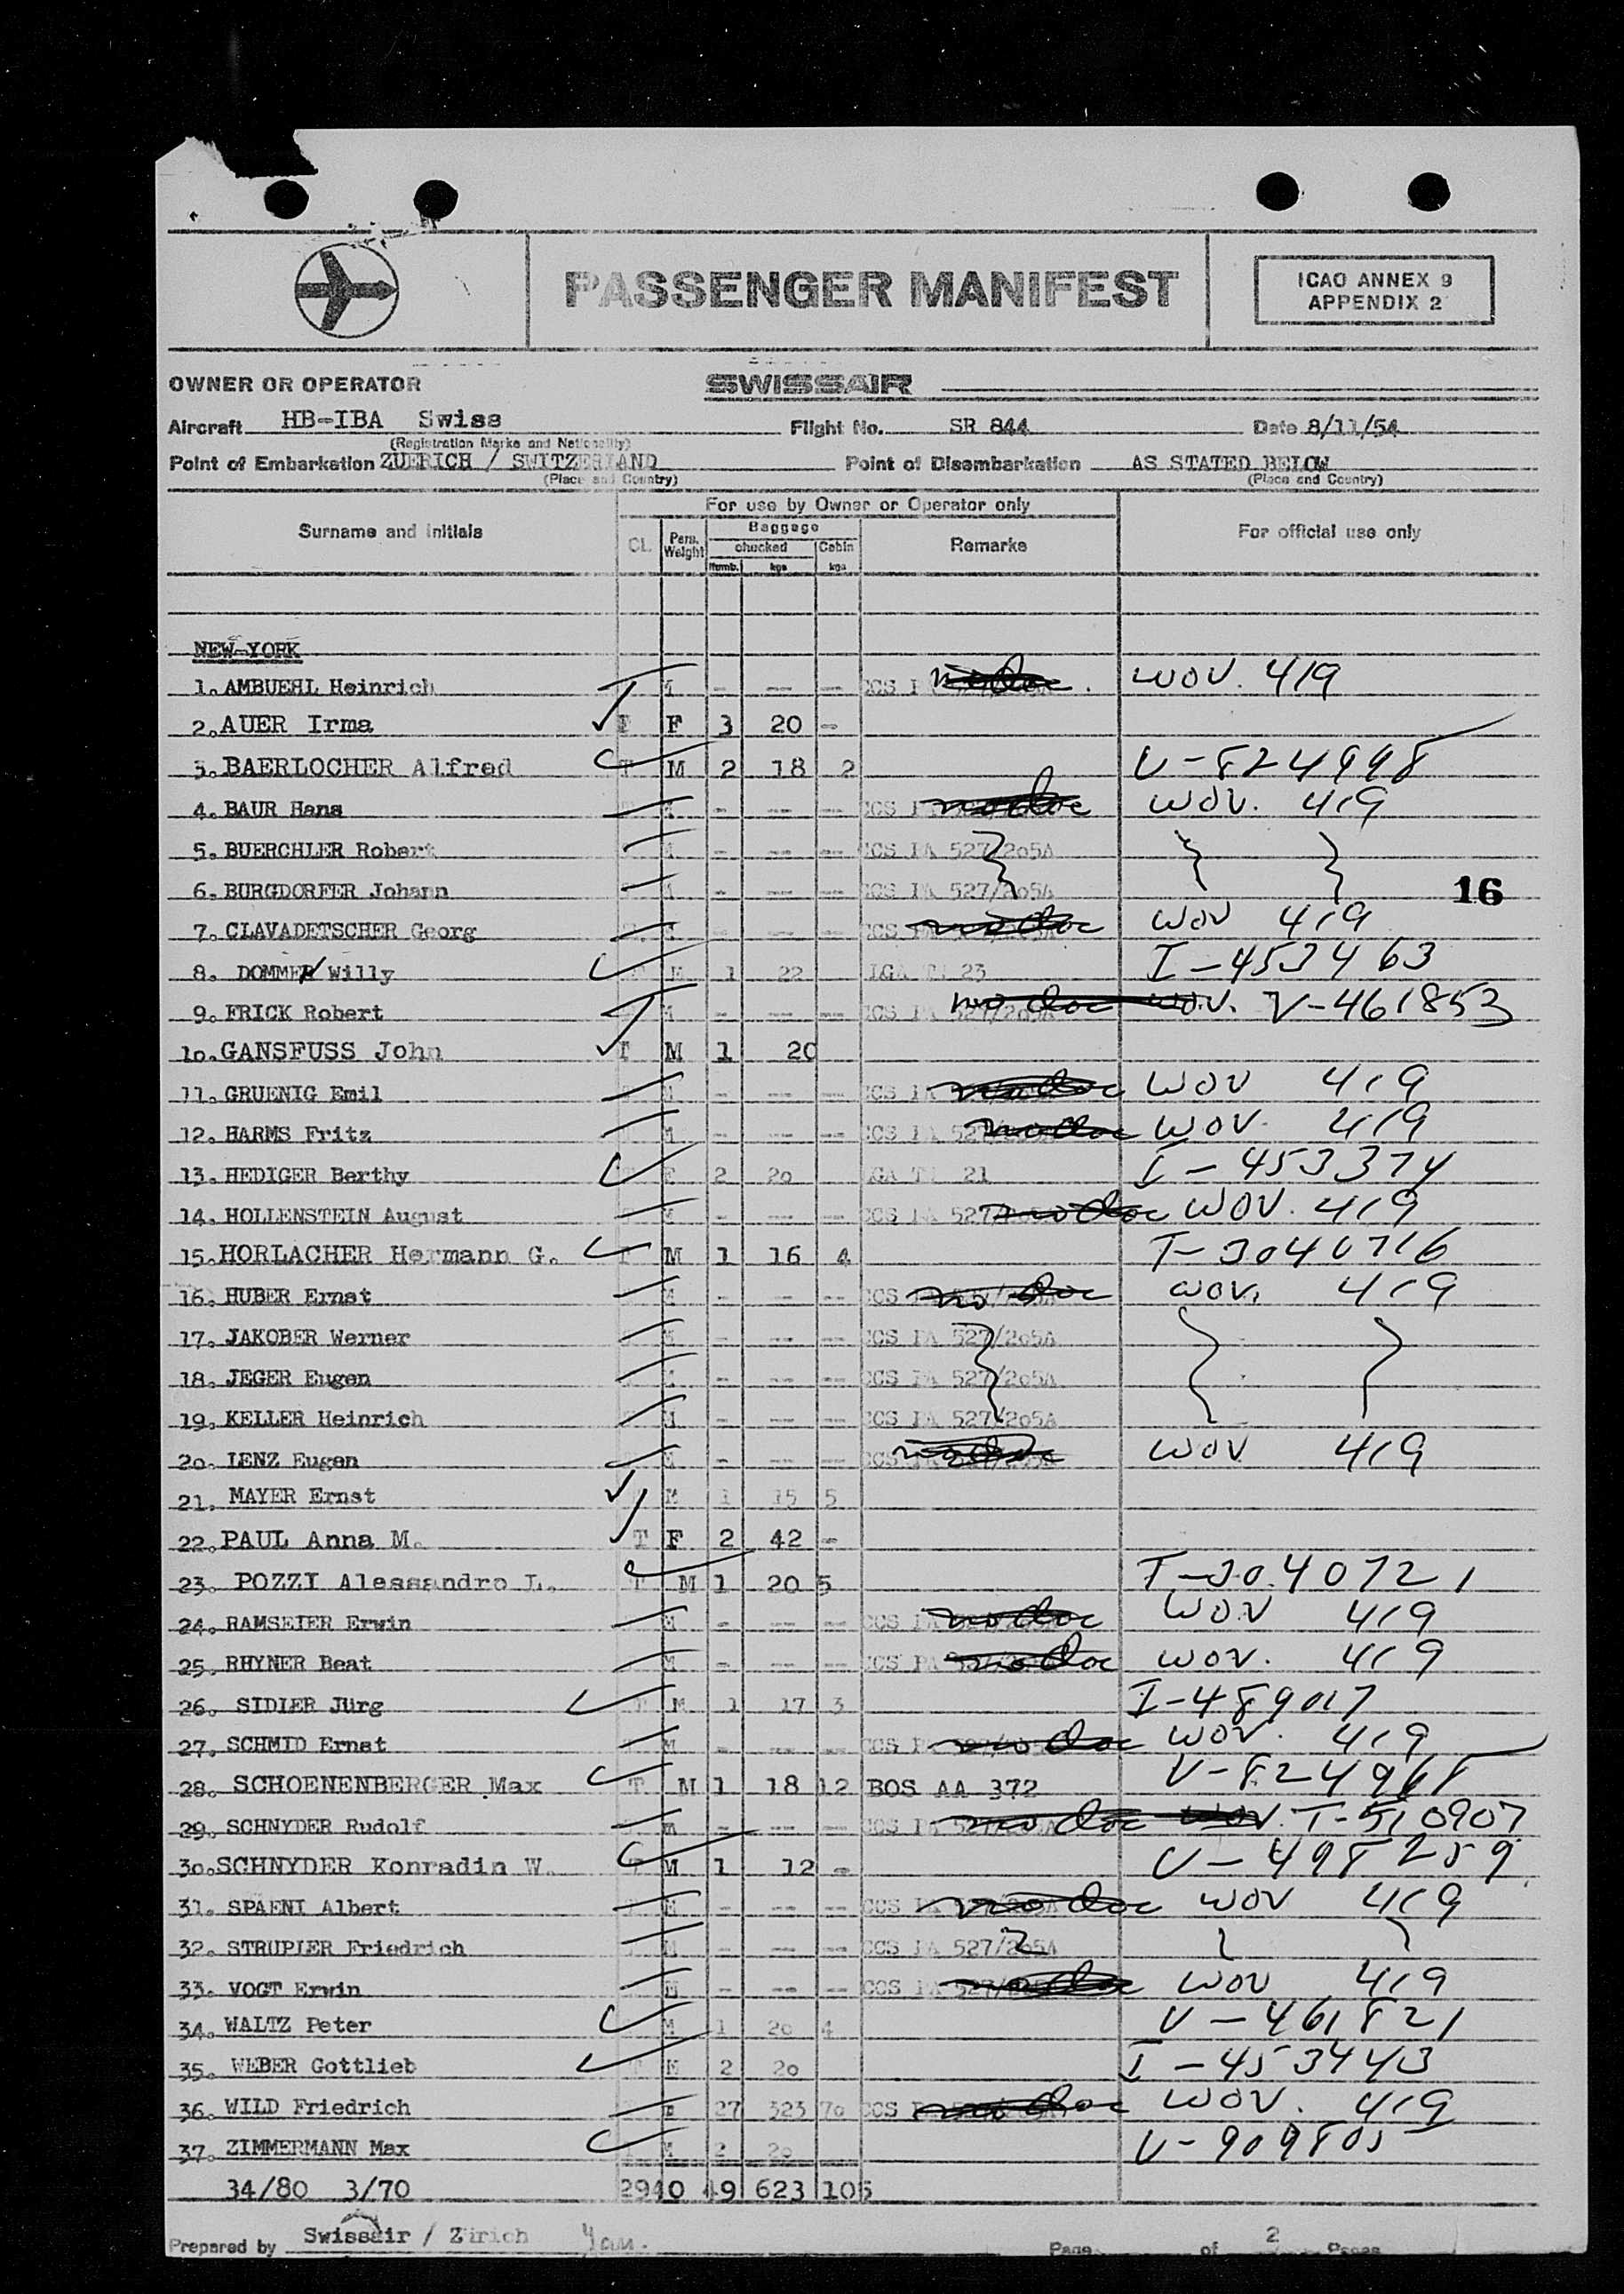 PASSENGER MANIFEST
ICAO ANNEX 9
APPENDIX 2
OWNER OR OPERATOR SWISSAIR
Aircraft HB-IBA Swiss Flight No. SR 844 Date 8/11/54
(Registration Marks and Nationality)
Point of Embarkation ZUERICH / SWITZERLAND Point of Disembarkation AS STATED BELOW
(Place and Country) (Place and Country)
For use by Owner or Operator only
Surname and initials CL. Pers. Weight Baggage Remarks For official use only
checked Cabin
Numb. kgs kgs
NEW-YORK
1. AMBUEHL Heinrich M - -- -- CCS no doc WOV. 419
2. AUER Irma T F 3 20 -
3. BAERLOCHER Alfred T M 2 18 2 V-824998
4. BAUR Hans - -- -- CCS no doc WOV. 419
5. BUERCHLER Robert - -- -- CCS PA 527/205A
6. BURGDORFER Johann - -- -- CCS PA 527/205A
16
7. CLAVADETSCHER Georg - -- -- CCS no doc WOV 419
8. DOMMER Willy M 1 22 LGA TW 23 I-4534 63
9. FRICK Robert - -- -- CCS PA 527/205A no doc WOV. V-461853
10. GANSFUSS John T M 1 20
11. GRUENIG Emil - -- -- CCS no doc WOV 419
12. HARMS Fritz M - -- -- CCS PA 527 no doc WOV. 419
13. HEDIGER Berthy F 2 20 LGA 21 I-453374
14. HOLLENSTEIN August M - -- -- CCS PA 527/ no doc WOV. 419
15. HORLACHER Hermann G. T M 1 16 4 T-3040716
16. HUBER Ernst M - -- -- CCS no doc WOV. 419
17. JAKOBER Werner M - -- -- CCS PA 527/205A
18. JEGER Eugen - -- -- CCS PA 527/205A
19. KELLER Heinrich M - -- -- CCS PA 527/205A
20. LENZ Eugen M - -- -- CCS no doc WOV 419
21. MAYER Ernst M 1 15 5
22. PAUL Anna M. T F 2 42 -
23. POZZI Alessandro L. T M 1 20 5 T-3040721
24. RAMSEIER Erwin M - -- -- CCS no doc WOV 419
25. RHYNER Beat M - -- -- CCS PA no doc WOV. 419
26. SIDLER Jürg T M 1 17 3 I-489017
27. SCHMID Ernst M - -- -- CCS no doc WOV. 419
28. SCHOENENBERGER Max T M 1 18 12 BOS AA 372 V-824968
29. SCHNYDER Rudolf M - -- -- CCS no doc WOV. T-510907
30. SCHNYDER Konradin W. T M 1 12 - V-498259
31. SPAENI Albert M - -- -- CCS no doc WOV 419
32. STRUPLER Friedrich M - -- -- CCS PA 527/205A
33. VOGT Erwin M - -- -- CCS PA 527/ no doc WOV 419
34. WALTZ Peter M 1 20 4 V-461821
35. WEBER Gottlieb T M 2 20 I-453443
36. WILD Friedrich M 27 323 70 CCS no doc WOV. 419
37. ZIMMERMANN Max M 2 20 V-909805
34/80 3/70 2940 49 623 105
Prepared by Swissair / Zürich Page of 2 Pages